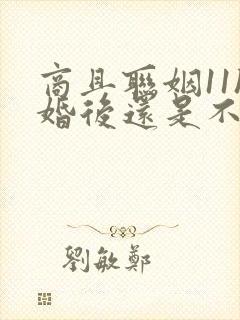 商且聯姻11
婚後還是不
劉敏鄭